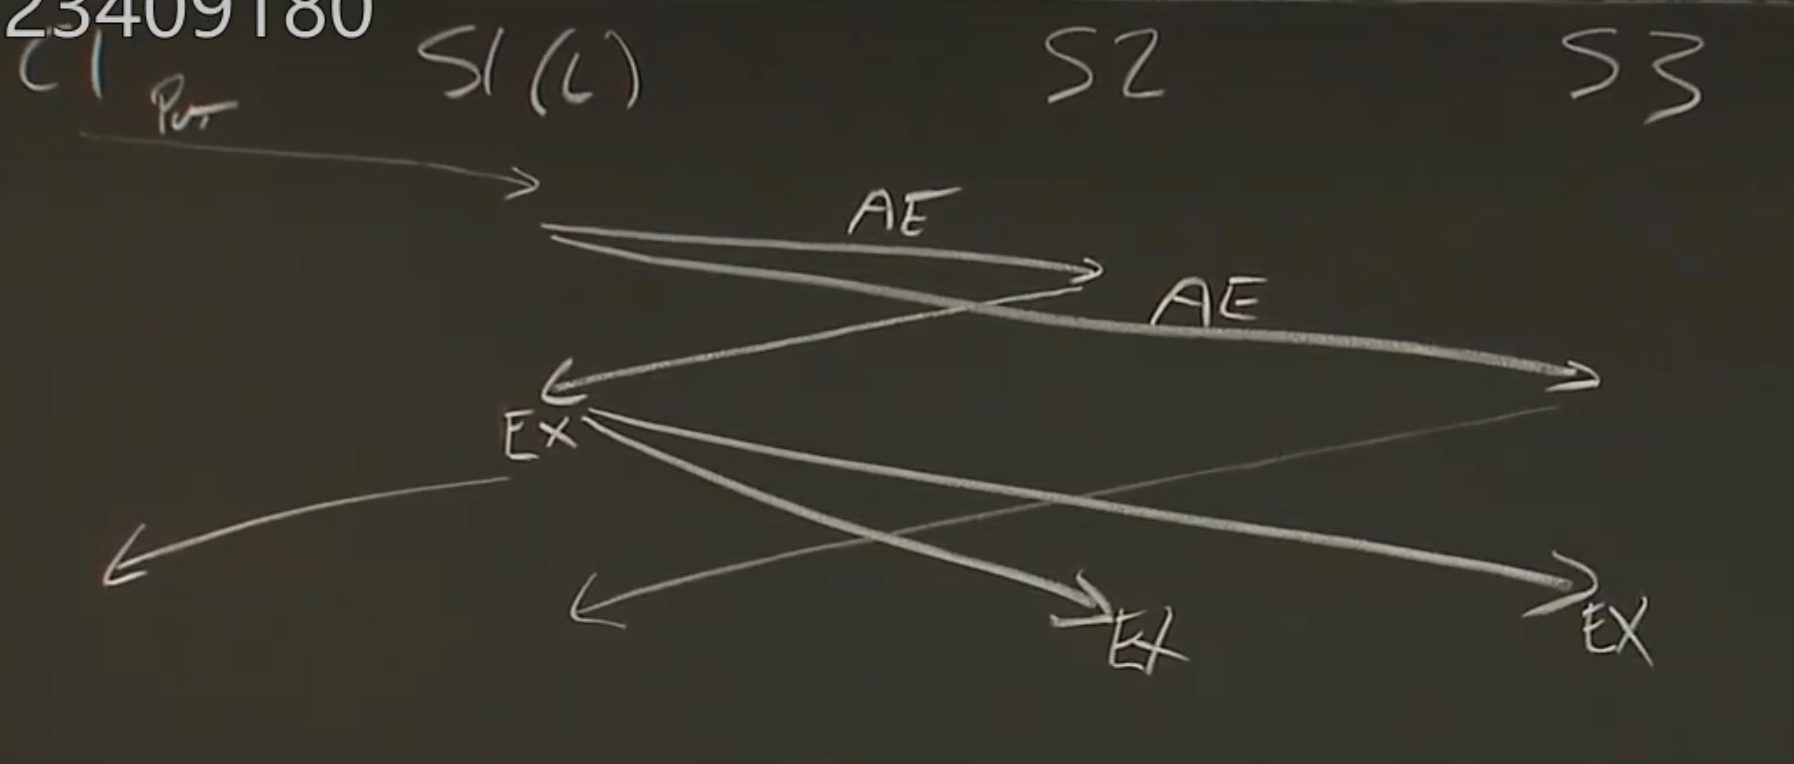 23409180
C1 S1 (L) S2 S3
Put
AE
AE
EX
EX
EX